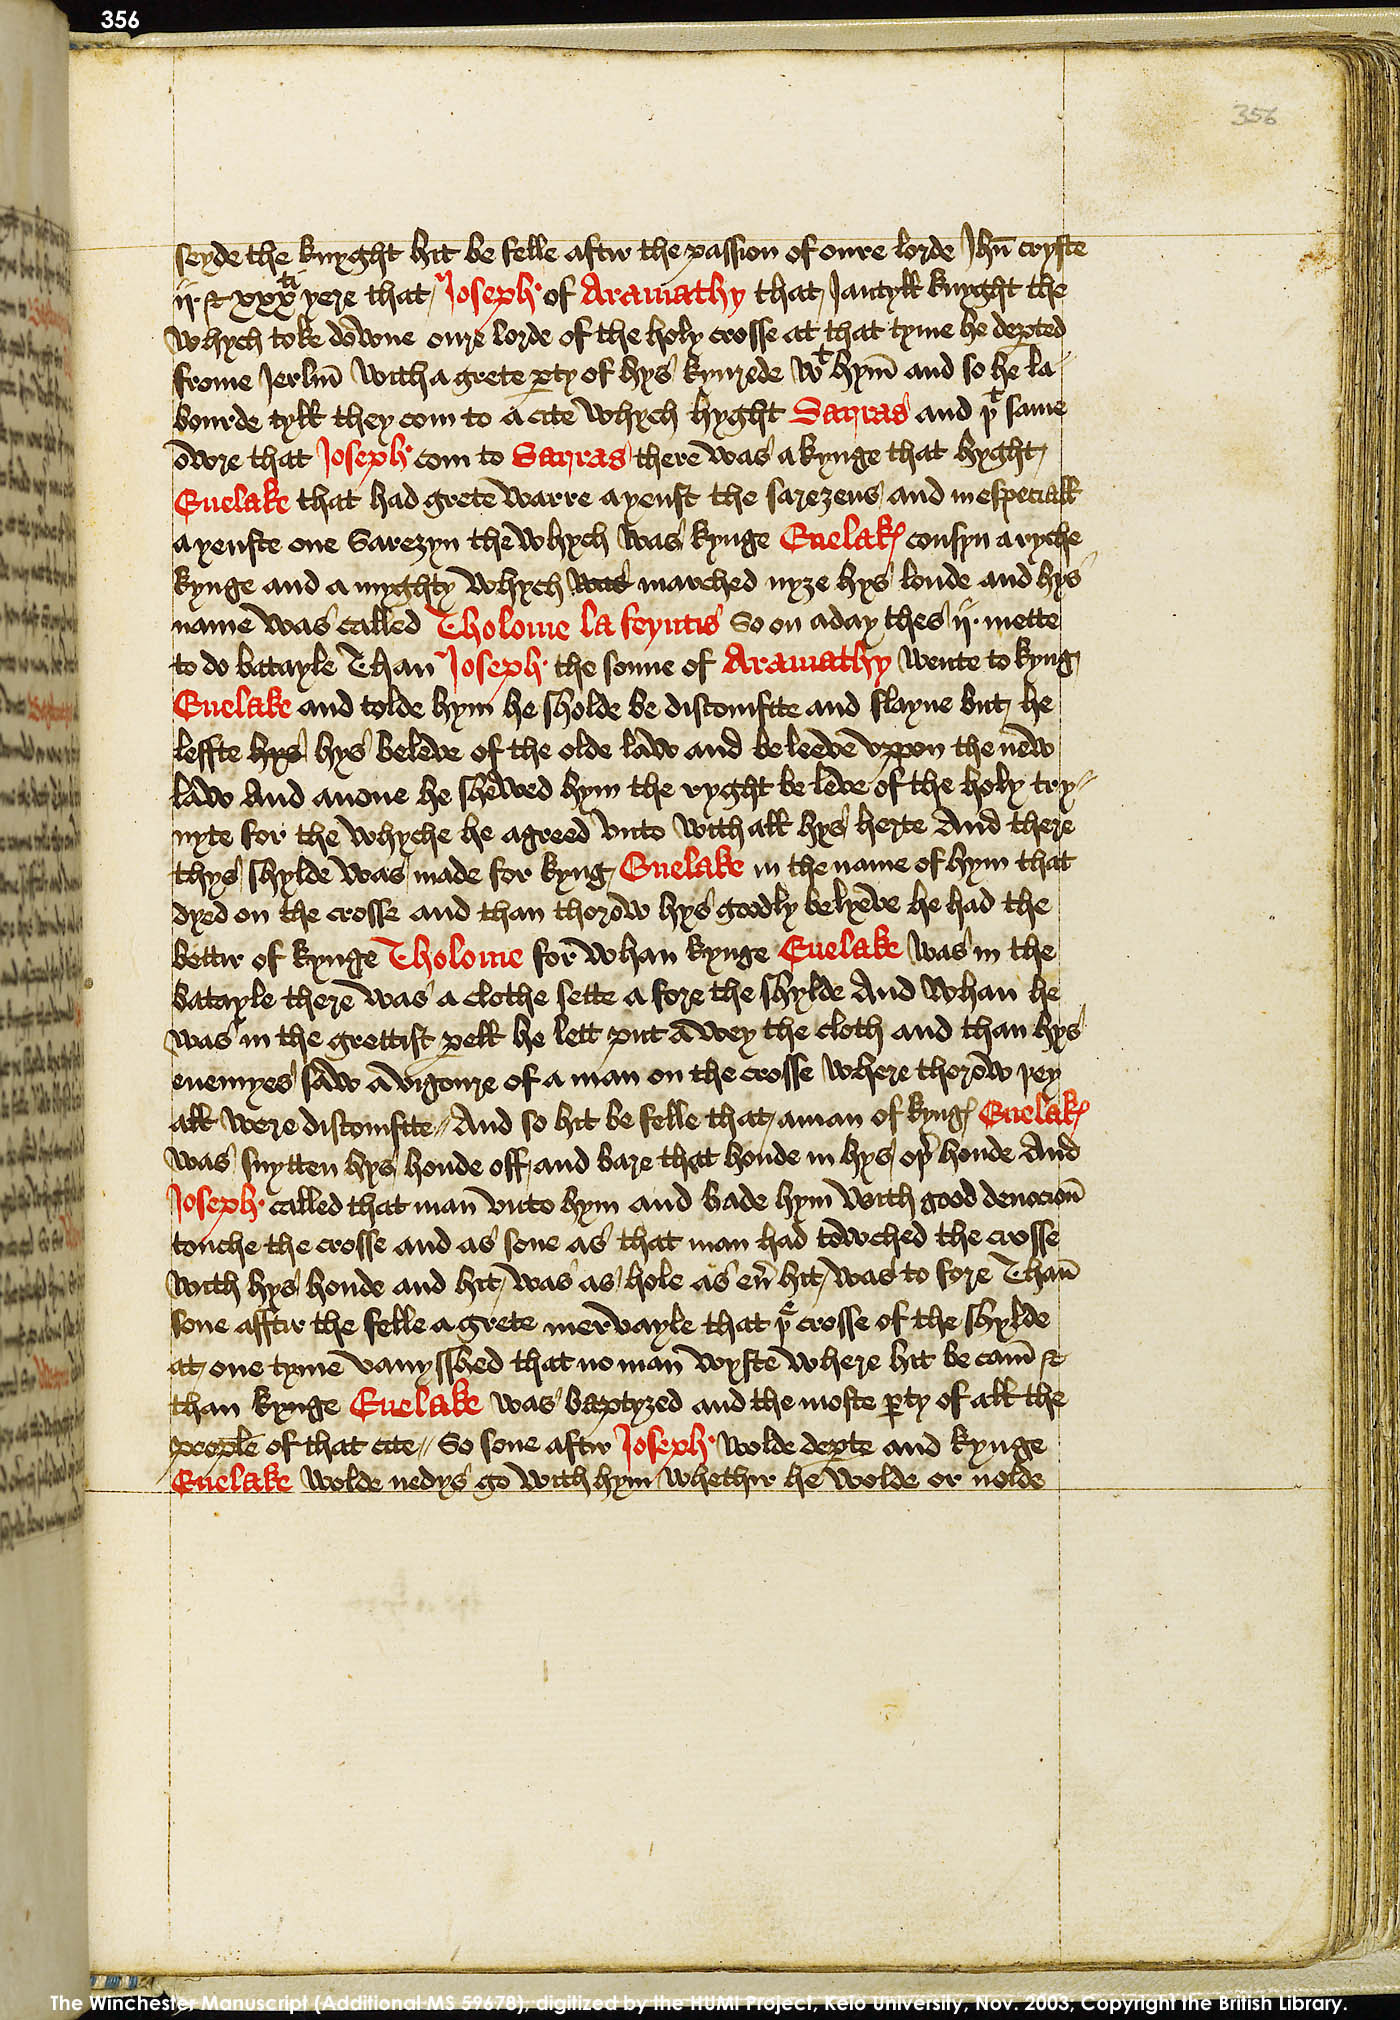 356
356
seyde the knyght hit be felle aftir the passion of oure lorde Jhū cryste
ij. & xxx ti yere that Joseph of Aramathy that Jantyll knyght the
whych toke downe oure lorde of the holy crosse at that tyme he deꝑted
frome Jerlm̄ with a grete ꝑty of hys kynrede wt hym̄ and so he la
bourde tyll they com to a cite whych hyght Sarras and þt same
owre that Joseph com to Sarras there was a kynge that hyght
Euelake that had grete warre ayenst the sarezens and in especiall
ayenste one Sarezyn the whych was kynge Euelakꝭ cousyn a ryche
kynge and a myghty whych was marched nyze hys londe and hys
name was called Tholome la feyntis So on a day thes ij. mette
to do batayle Than Joseph the sonne of Aramathy wente to kyng
Euelake and tolde hym he sholde be discomfite and slayne but he
leffte hys hys beleve of the olde law and beleeve vppon the new
law And anone he shewed hym the ryght be leve of the holy try
nyte for the whyche he agreed vnto with all hys herte And there
thys shylde was made for kyng Euelake in the name of hym that
dyed on the crosse and than thorow hys goodly belyeve he had the
bettir of kynge Tholome for whan kynge Euelake was in the
batayle there was a clothe sette a fore the shylde And whan he
was in the grettist ꝑell he lett put a wey the cloth and than hys
enemyes saw a vigoure of a man on the crosse where thorow þey
all were discomfite And so hit be felle that a man of kyngꝭ Euelakꝭ
was smytten hys honde off and bare that honde in hys oþ̄ honde And
Joseph called that man vnto hym and bade hym with good deuocion̄
touche the crosse and as sone as that man had towched the crosse
with hys honde and hit was as hole as eū hit was to fore Than̄
sone afftir the felle a grete mervayle that þe crosse of the shylde
at one tyme vanysshed that no man wyste where hit be cam̄ &
than kynge Euelake was baptyzed and the moste ꝑty of all the
people of that cite So sone aftir Joseph wolde deꝑte and kynge
Euelake wolde nedys go with hym whethir he wolde or nolde
The Winchester Manuscript (Additional MS 59678); digitized by the HUMI Project, Keio University, Nov. 2003, Copyright the British Library.